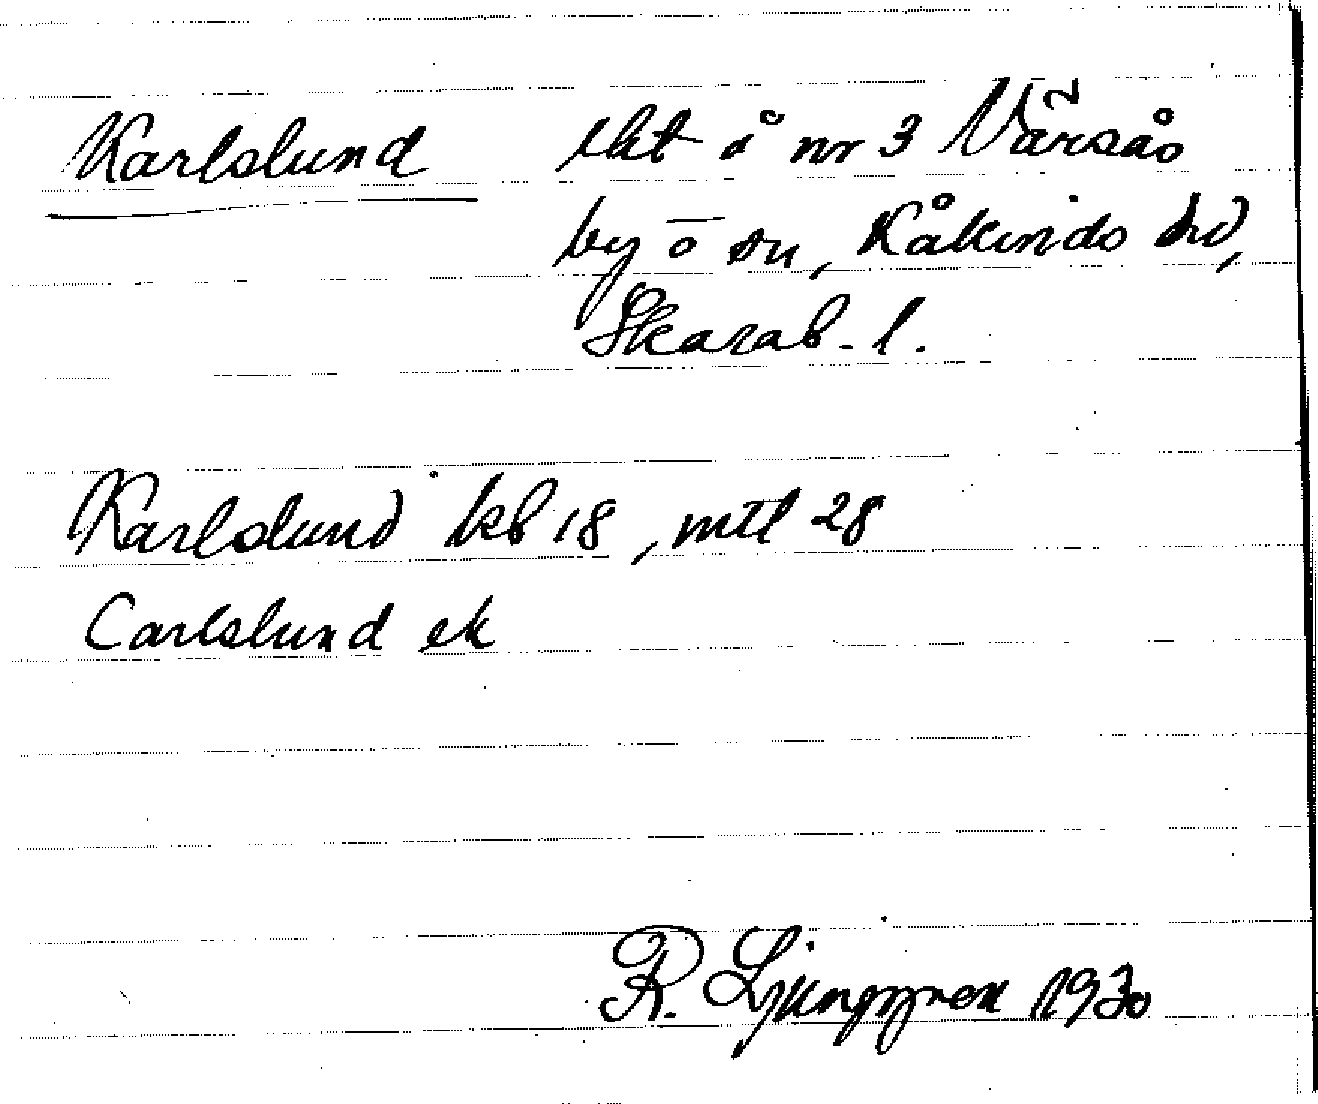 Karlslund lht å nr 3 Värsås
by o sn, Kåkinds hd,
Skarab. l.
Karlslund kb 18, mtl 28
Carlslund ek
R. Ljunggren 1930